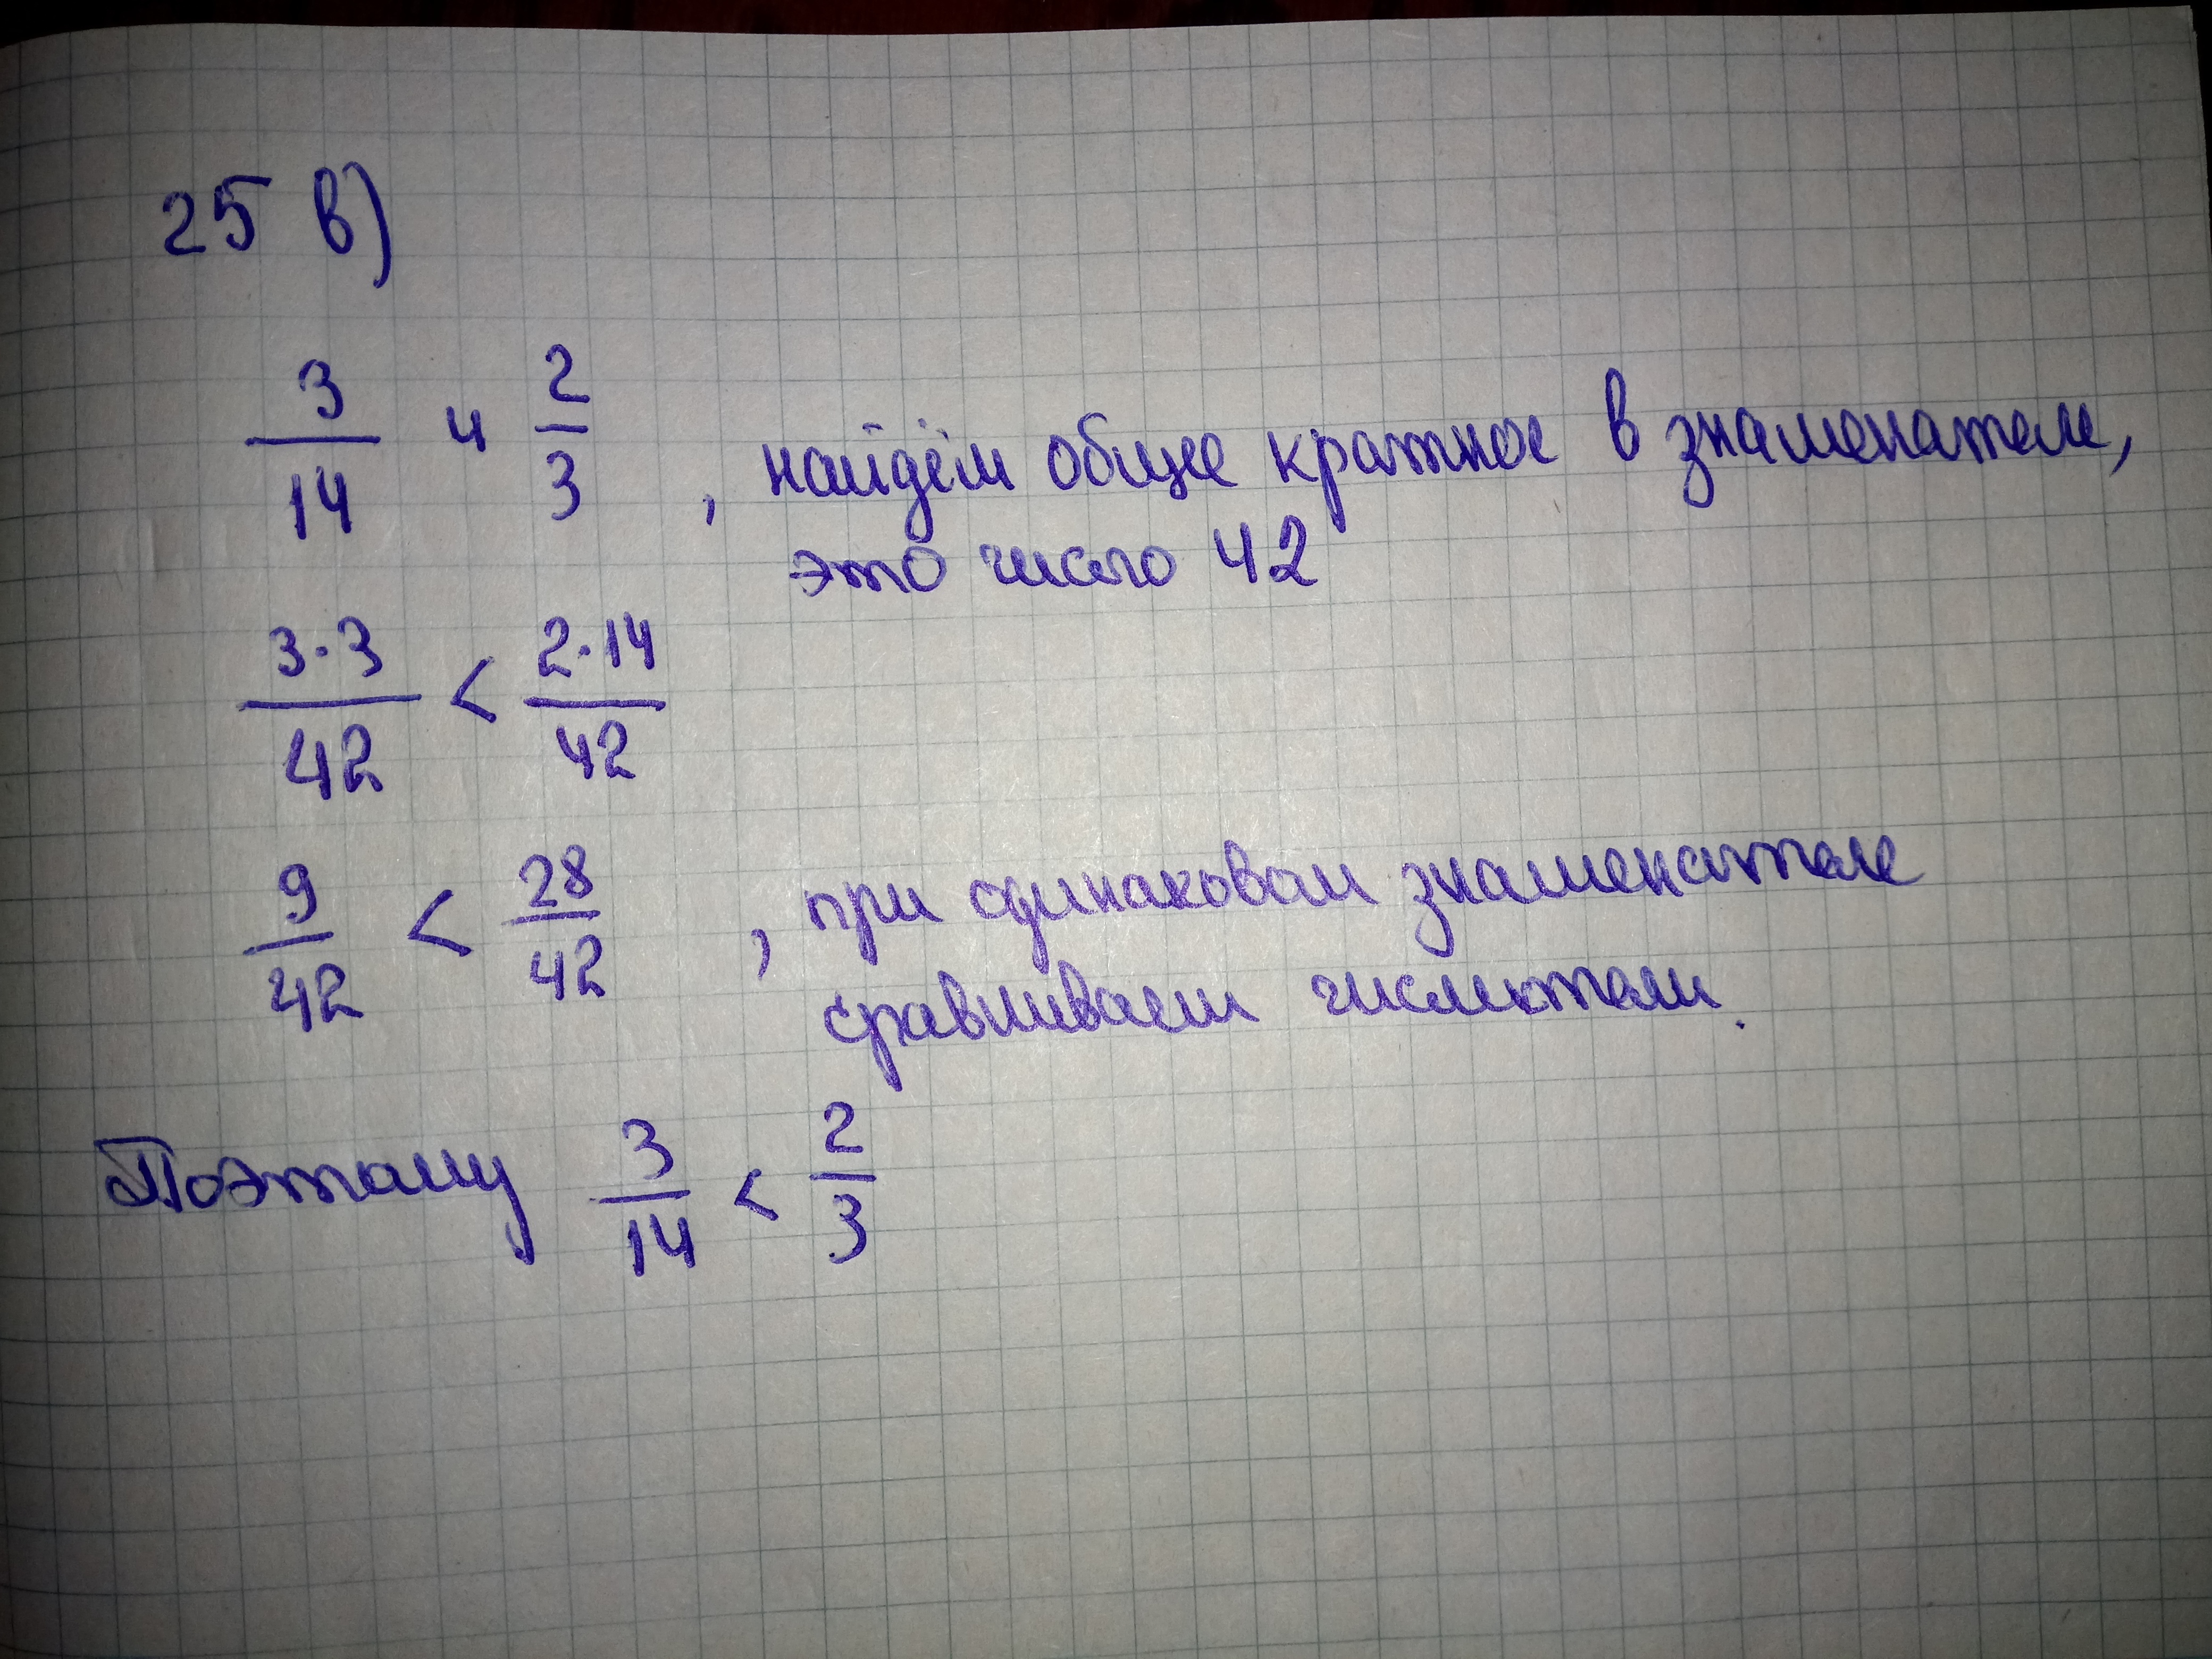 25 в)
3/14 и 2/3, найдём общее кратное в знаменателе,
это число 42
3·3/42 < 2·14/42
9/42 < 28/42, при одинаковом знаменателе
сравниваем числители.
Поэтому 3/14 < 2/3